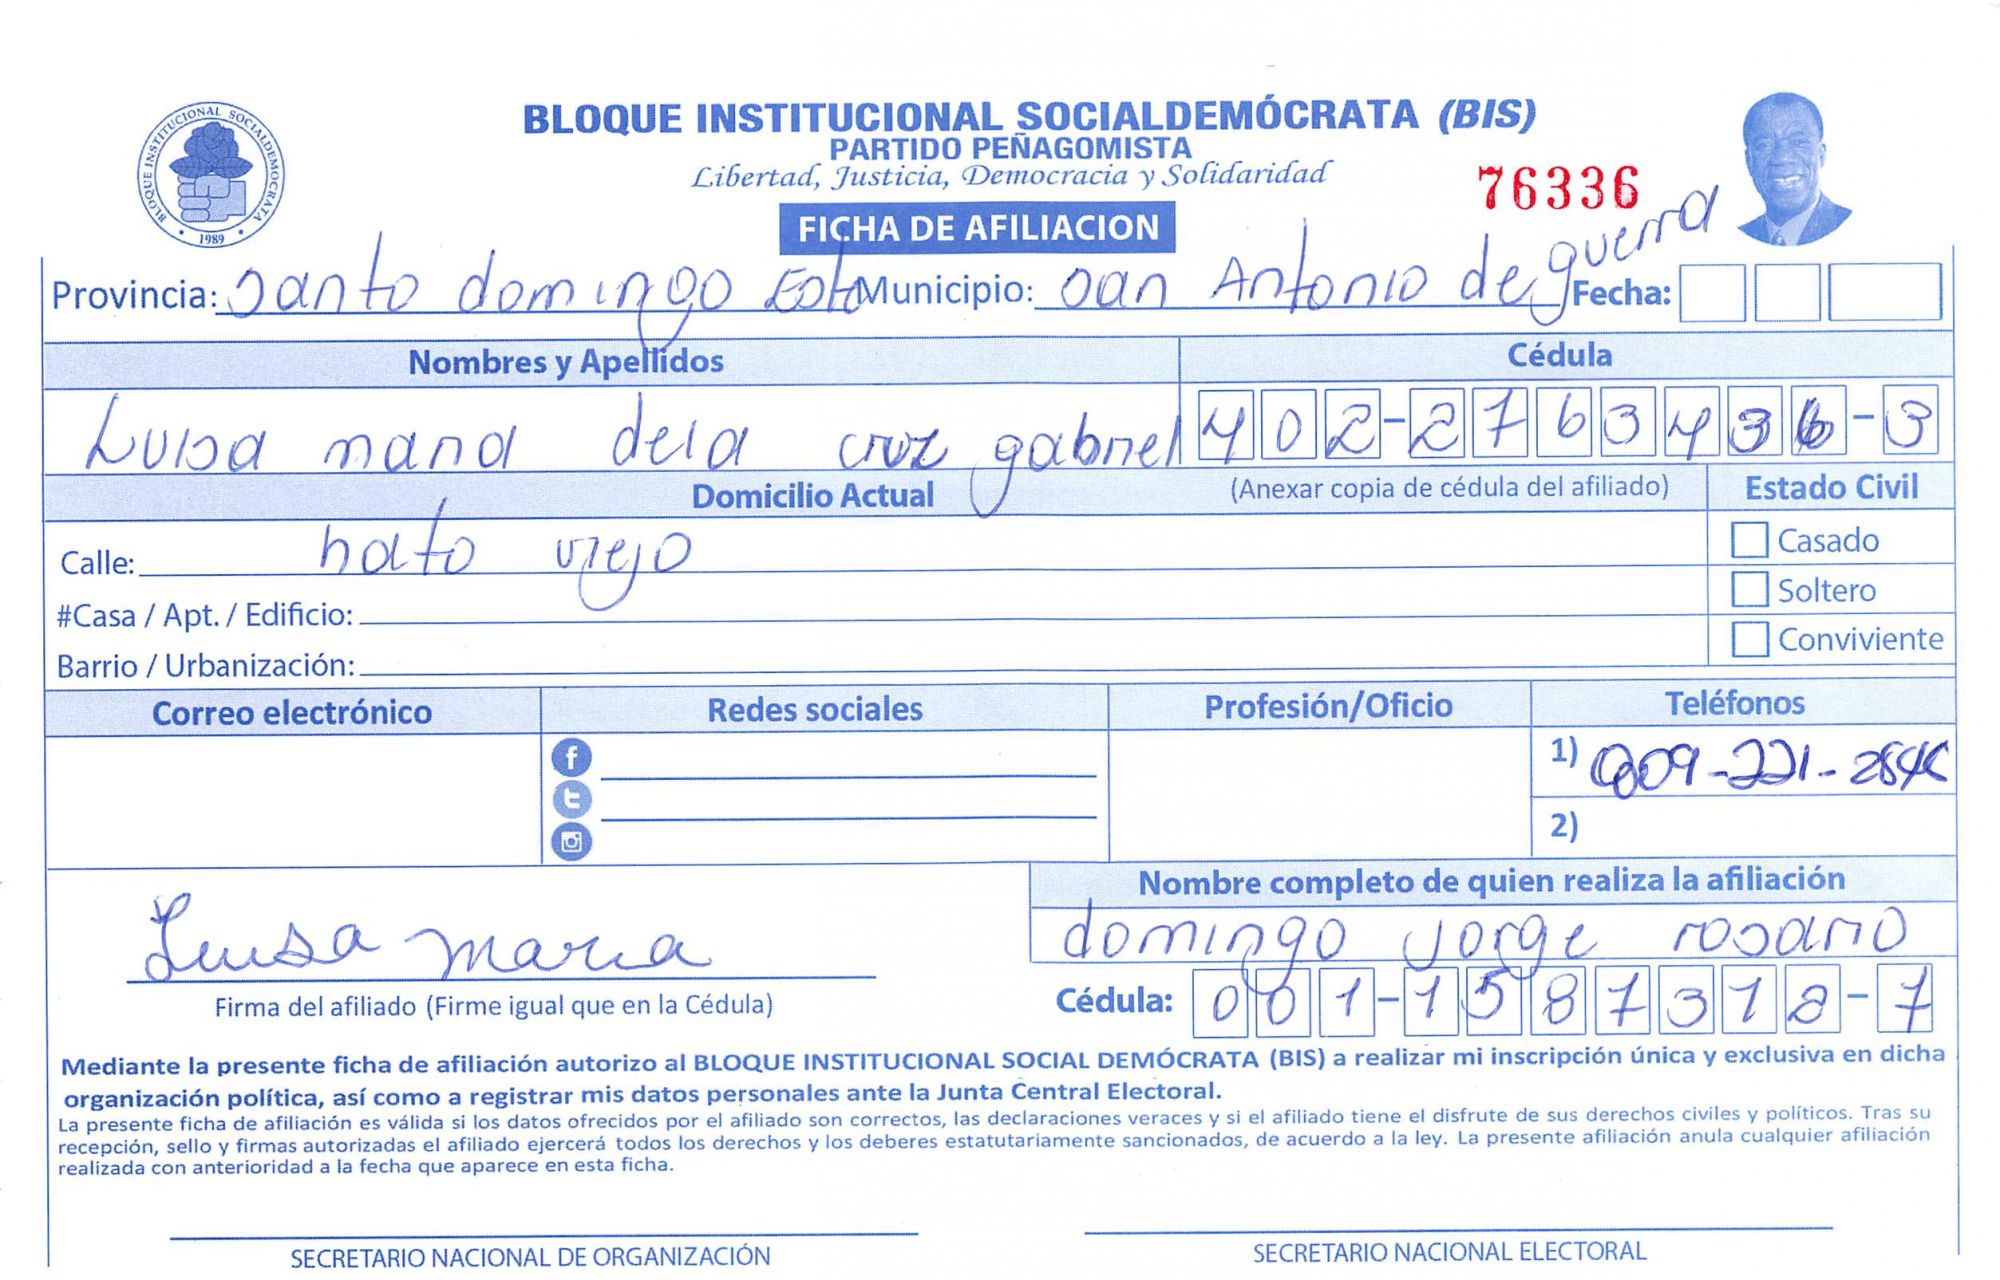 BLOQUE INSTITUCIONAL SOCIALDEMOCRATA
1989
BLOQUE INSTITUCIONAL SOCIALDEMÓCRATA (BIS)
PARTIDO PEÑAGOMISTA
Libertad, Justicia, Democracia y Solidaridad
76336
FICHA DE AFILIACION
Provincia: Santo domingo Este Municipio: San Antonio de guerra Fecha:
Nombres y Apellidos Cédula
Luisa maria dela cruz gabriel 402-2763436-3
Domicilio Actual (Anexar copia de cédula del afiliado) Estado Civil
Calle: hato viejo Casado
#Casa / Apt. / Edificio: Soltero
Barrio / Urbanización: Conviviente
Correo electrónico Redes sociales Profesión/Oficio Teléfonos
1) 809-221-
2)
Nombre completo de quien realiza la afiliación
Luisa maria domingo jorge rosario
Firma del afiliado (Firme igual que en la Cédula) Cédula: 001-1587312-7
Mediante la presente ficha de afiliación autorizo al BLOQUE INSTITUCIONAL SOCIAL DEMÓCRATA (BIS) a realizar mi inscripción única y exclusiva en dicha
organización política, así como a registrar mis datos personales ante la Junta Central Electoral.
La presente ficha de afiliación es válida si los datos ofrecidos por el afiliado son correctos, las declaraciones veraces y si el afiliado tiene el disfrute de sus derechos civiles y políticos. Tras su
recepción, sello y firmas autorizadas el afiliado ejercerá todos los derechos y los deberes estatutariamente sancionados, de acuerdo a la ley. La presente afiliación anula cualquier afiliación
realizada con anterioridad a la fecha que aparece en esta ficha.
SECRETARIO NACIONAL DE ORGANIZACIÓN SECRETARIO NACIONAL ELECTORAL